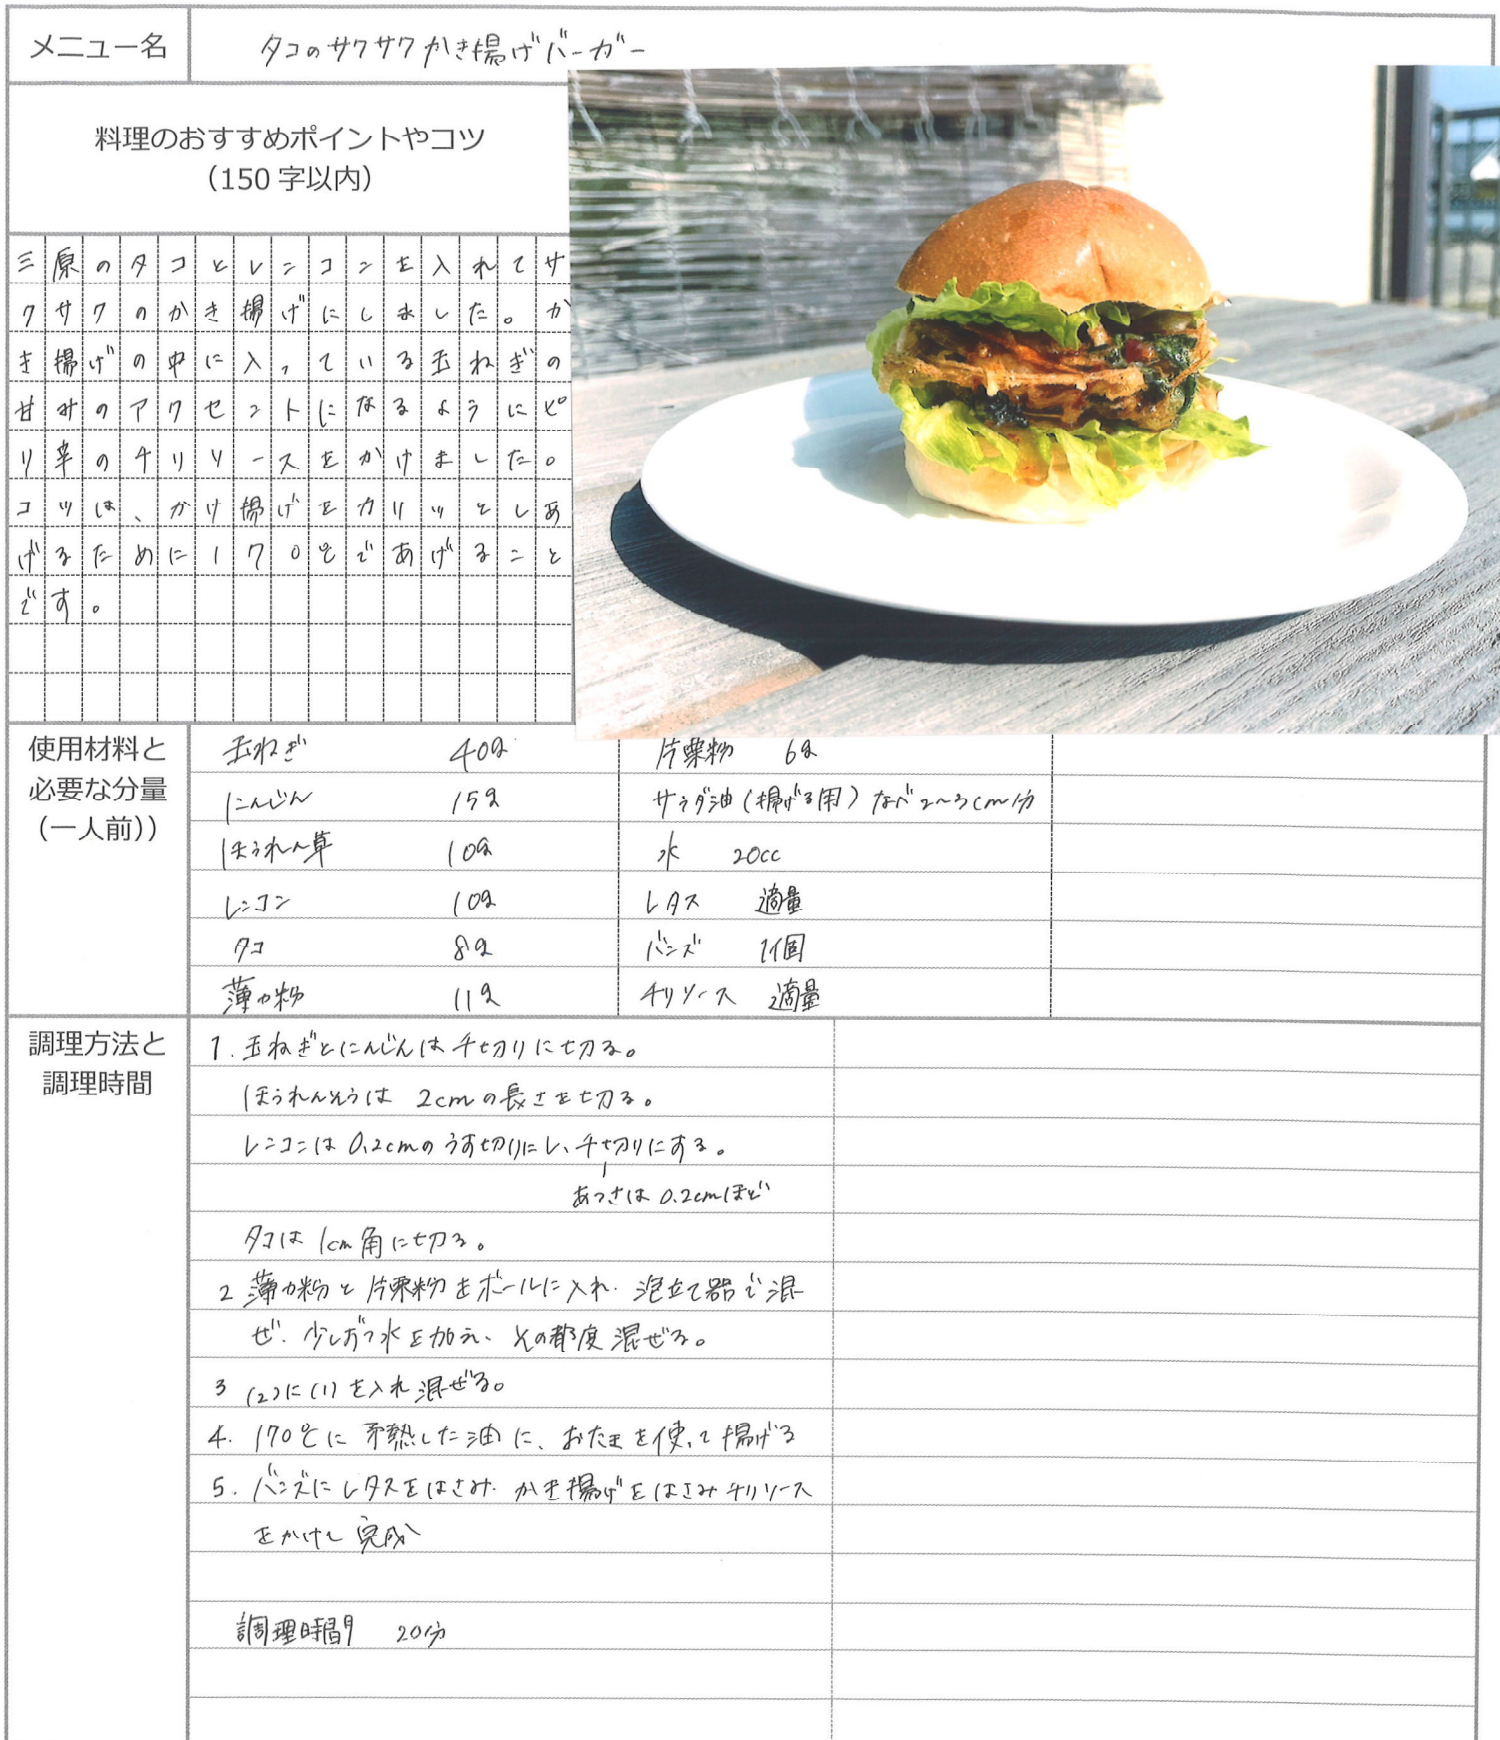 メニュー名 タコのサクサクかき揚げバーガー
料理のおすすめポイントやコツ
（150字以内）
三原のタコとレンコンを入れてサ
クサクのかき揚げにしました。か
き揚げの中に入っている玉ねぎの
甘みのアクセントになるようにピ
リ辛のチリソースをかけました。
コツは、かけ揚げをカリッとしあ
げるために170℃であげること
です。
使用材料と
必要な分量
（一人前））
玉ねぎ 40g 片栗粉 6g
にんじん 15g サラダ油（揚げる用）なべ2〜3cm分
ほうれん草 10g 水 20cc
レンコン 10g レタス 適量
タコ 8g バンズ 1個
薄力粉 11g チリソース 適量
調理方法と
調理時間
1. 玉ねぎとにんじんは千切りに切る。
ほうれんそうは 2cmの長さを切る。
レンコンは 0.2cmのうす切りにし、千切りにする。
あつさは 0.2cmほど
タコは 1cm角に切る。
2 薄力粉と片栗粉をボールに入れ、泡立て器で混
ぜ、少しずつ水を加え、その都度混ぜる。
3 (2)に(1)を入れ混ぜる。
4. 170℃に予熱した油に、おたまを使って揚げる
5. バンズにレタスをはさみ、かき揚げをはさみチリソース
をかけて完成
調理時間 20分